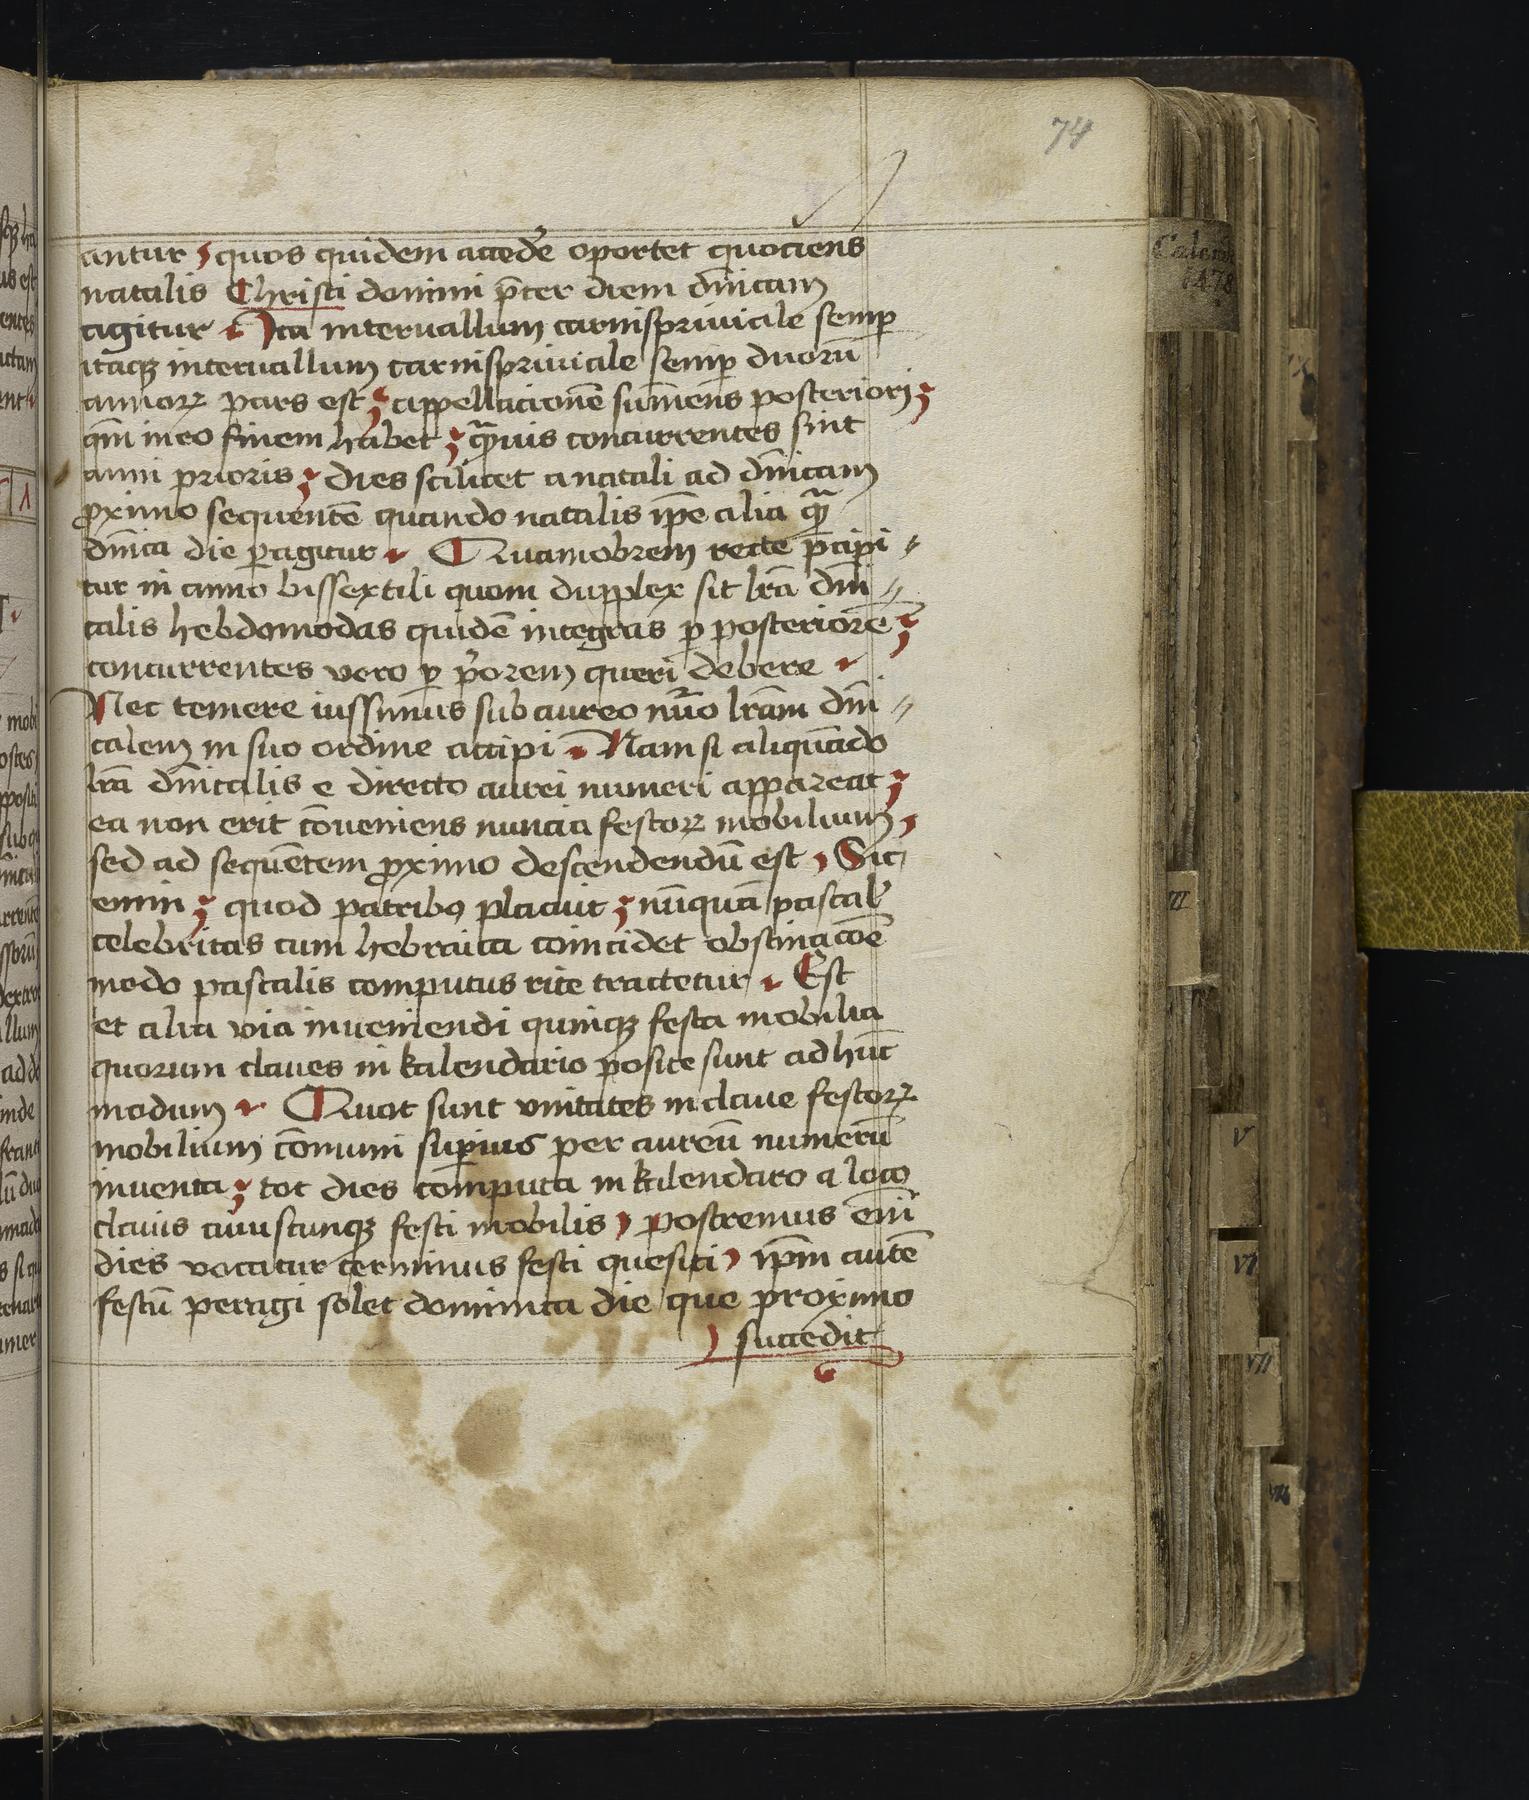 74
Calend
1478
antur, quos quidem accedẽ oportet quociens
natalis Christi domini p̃ter diem dñicam
agitur Ita intervallum carnispriviale semꝑ
itaqꝫ intervallum carnispriviale semꝑ duorũ
annoꝝ pars est appellacionẽ sumens posterioris
qm̃ in eo finem habet q̃mvis concurrentes sint
anni prioris dies scilicet a natali ad dñicam
ꝓximo sequentẽ quando natalis ip̃e alia q̃
dñica die ꝑagitur Quamobrem recte p̃cipi〃
tur in anno bissextili quom dupplex sit lr̃a dñi〃
calis hebdomodas quidẽ integras ꝑ posteriorẽ
concurrentes vero ꝑ p̃orem queri debere
Nec temere iussimus sub aureo nũo lr̃am dñi〃
calem in suo ordine accipi Nam si aliquando
lr̃a dñicalis e directo aurei numeri appareat
ea non erit cõveniens nuncia festoꝝ mobilium,
sed ad sequẽtem ꝓximo descendendũ est, Sic
enim quod patribꝰ placuit nũquã pascal̃
celebritas cum hebraica coincidet obstinacõe
modo pascalis computus rite tractetur Est
et alia via inveniendi quinqꝫ festa mobilia
quorum claves in kalendario posite sunt ad hũc
modum Quot sunt vnitates in clave festoꝝ
mobilium cõmuni suꝑius per aureũ numerũ
inventa tot dies computa in kalendaro a loco
clavis cuiuscunqꝫ festi mobilis, postremus em̃
dies vocatur terminus festi quesiti, ip̃m autẽ
festũ peragi solet dominica die que proximo
succedit
III
V
VI
VII